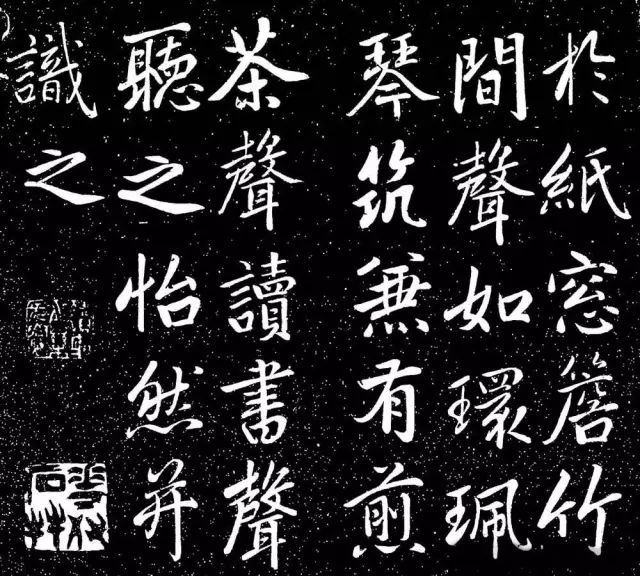 於紙窓簷竹
間聲如環珮
琴筑兼有煎
茶聲讀書聲
聽之怡然并
識之